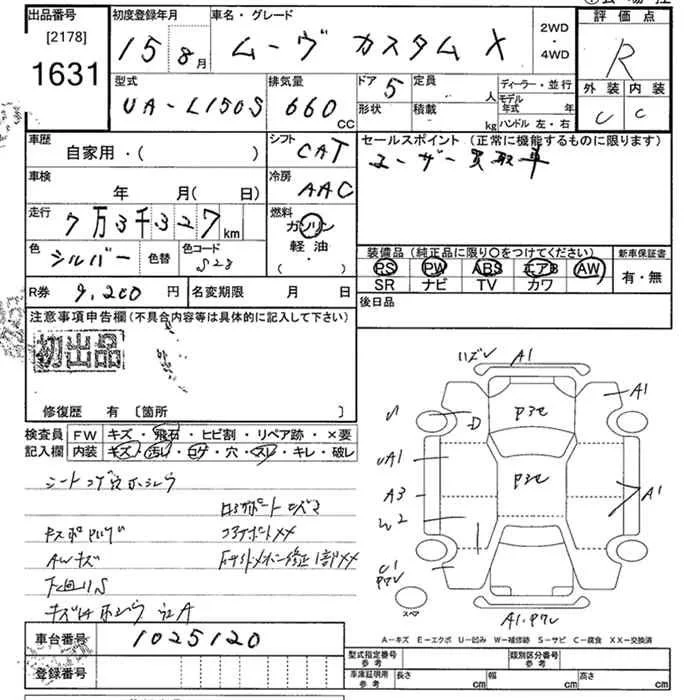 出品番号
[2178]
1631
初度登録年月
15 8月
車名・グレード
ムーヴ カスタム X
2WD
・
4WD
評価点
R
外装 内装
C C
型式
UA-L150S
排気量
660 CC
ドア 5
形状
定員 人
積載 kg
ディーラー・並行
モデル年式 年
ハンドル 左・右
車歴
自家用・( )
シフト
CAT
セールスポイント (正常に機能するものに限ります)
ユーザー買取車
車検
年 月( 日)
冷房
AAC
走行
7万3千327km
燃料
ガソリン
軽油
( ・ )
色
シルバー
色替
色コード
S28
装備品 (純正品に限り○をつけてください)
新車保証書
PS PW ABS エアB AW
SR ナビ TV カワ
有・無
R券 9,200円
名変期限 月 日
後日品
注意事項申告欄(不具合内容等は具体的に記入して下さい)
初出品
修復歴 有 〔箇所 〕
検査員記入欄
FW キズ・飛石・ヒビ割・リペア跡・×要
内装 キズ・汚れ・コゲ・穴・スレ・キレ・破レ
AWキズ
下回りS
A1
A1
P3C
UA1
P3C
A3
A1
W2
A1.P7V
スペア
A-キズ E-エクボ U-凹み W-補修跡 S-サビ C-腐食 XX-交換済
車台番号
1025120
登録番号
型式指定番号
参考
類別区分番号
参考
車庫証明用
参考
長さ cm
幅 cm
高さ cm